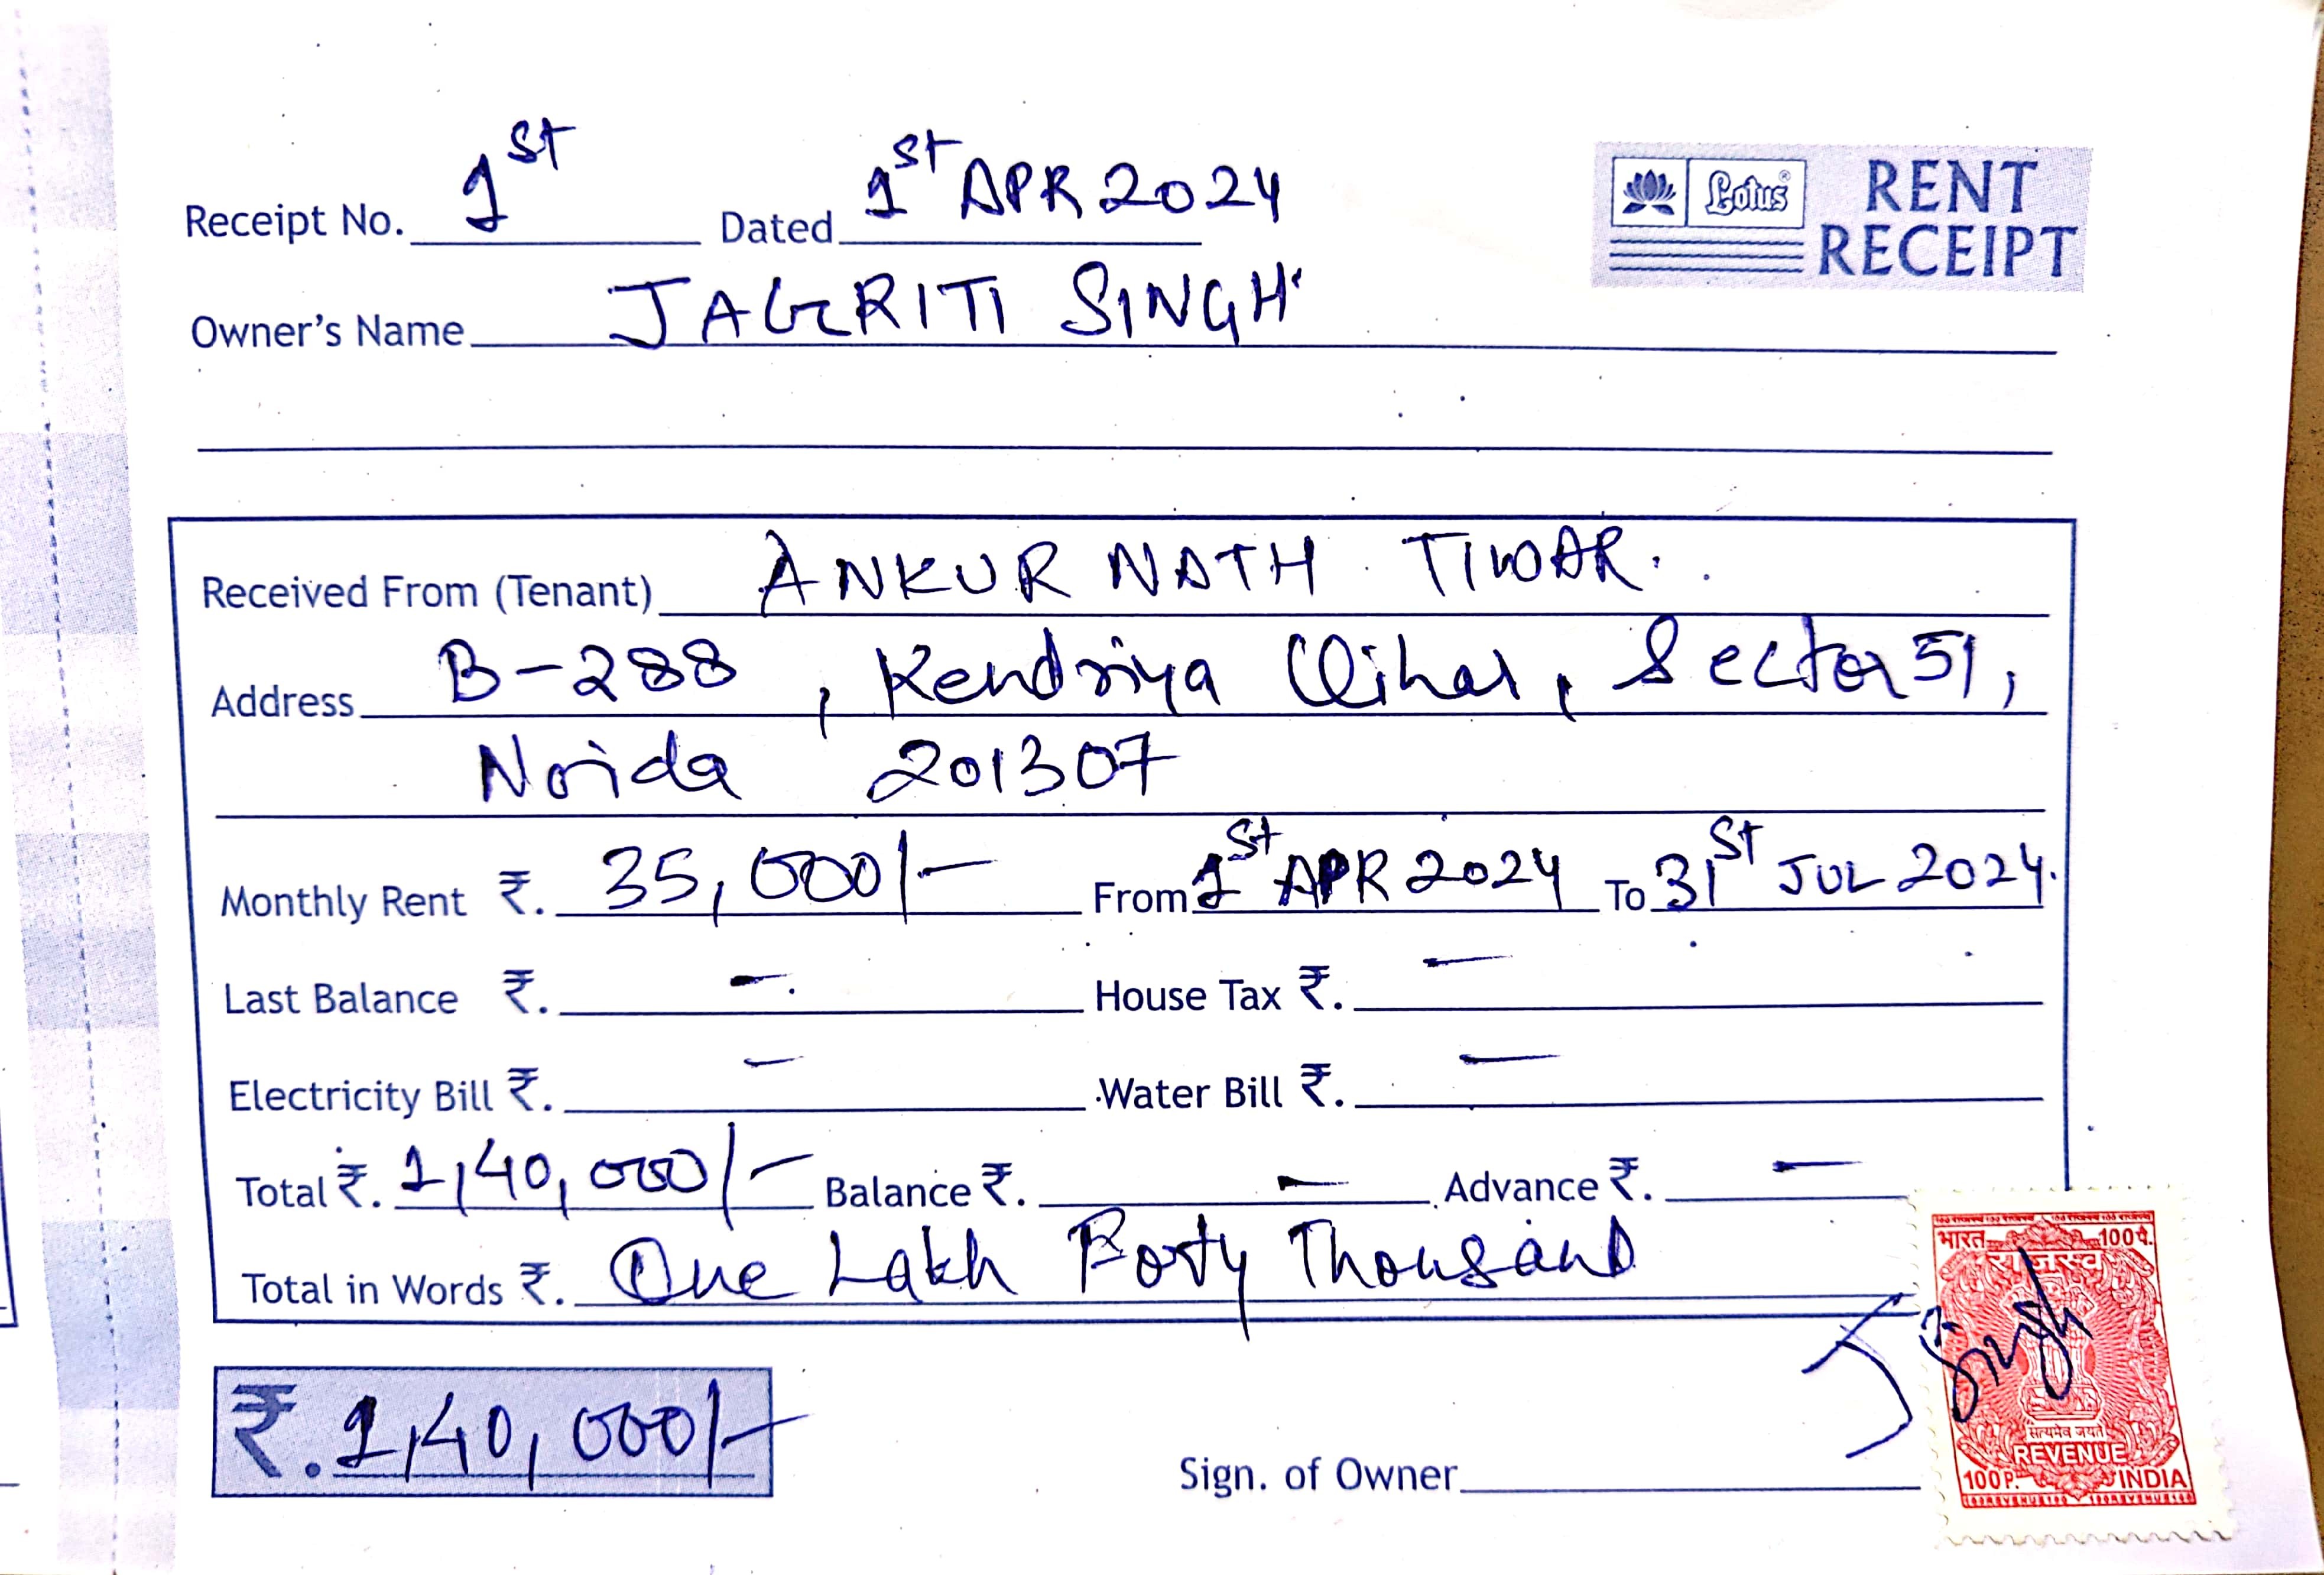 Receipt No. 1st Dated 1st APR 2024
Lotus® RENT RECEIPT
Owner's Name JAGRITI SINGH
Received From (Tenant) ANKUR NATH TIWAR.
Address B-288, Kendriya Vihar, Sector 51,
Noida 201307
Monthly Rent ₹. 35,000/- From 1st APR 2024 To 31st JUL 2024.
Last Balance ₹. - House Tax ₹. -
Electricity Bill ₹. - Water Bill ₹. -
Total ₹. 1,40,000/- Balance ₹. - Advance ₹. -
Total in Words ₹. One Lakh Forty Thousand
₹. 1,40,000/-
Sign. of Owner J Singh
भारत 100पै.
राजस्व
सत्यमेव जयते
REVENUE
100P. INDIA